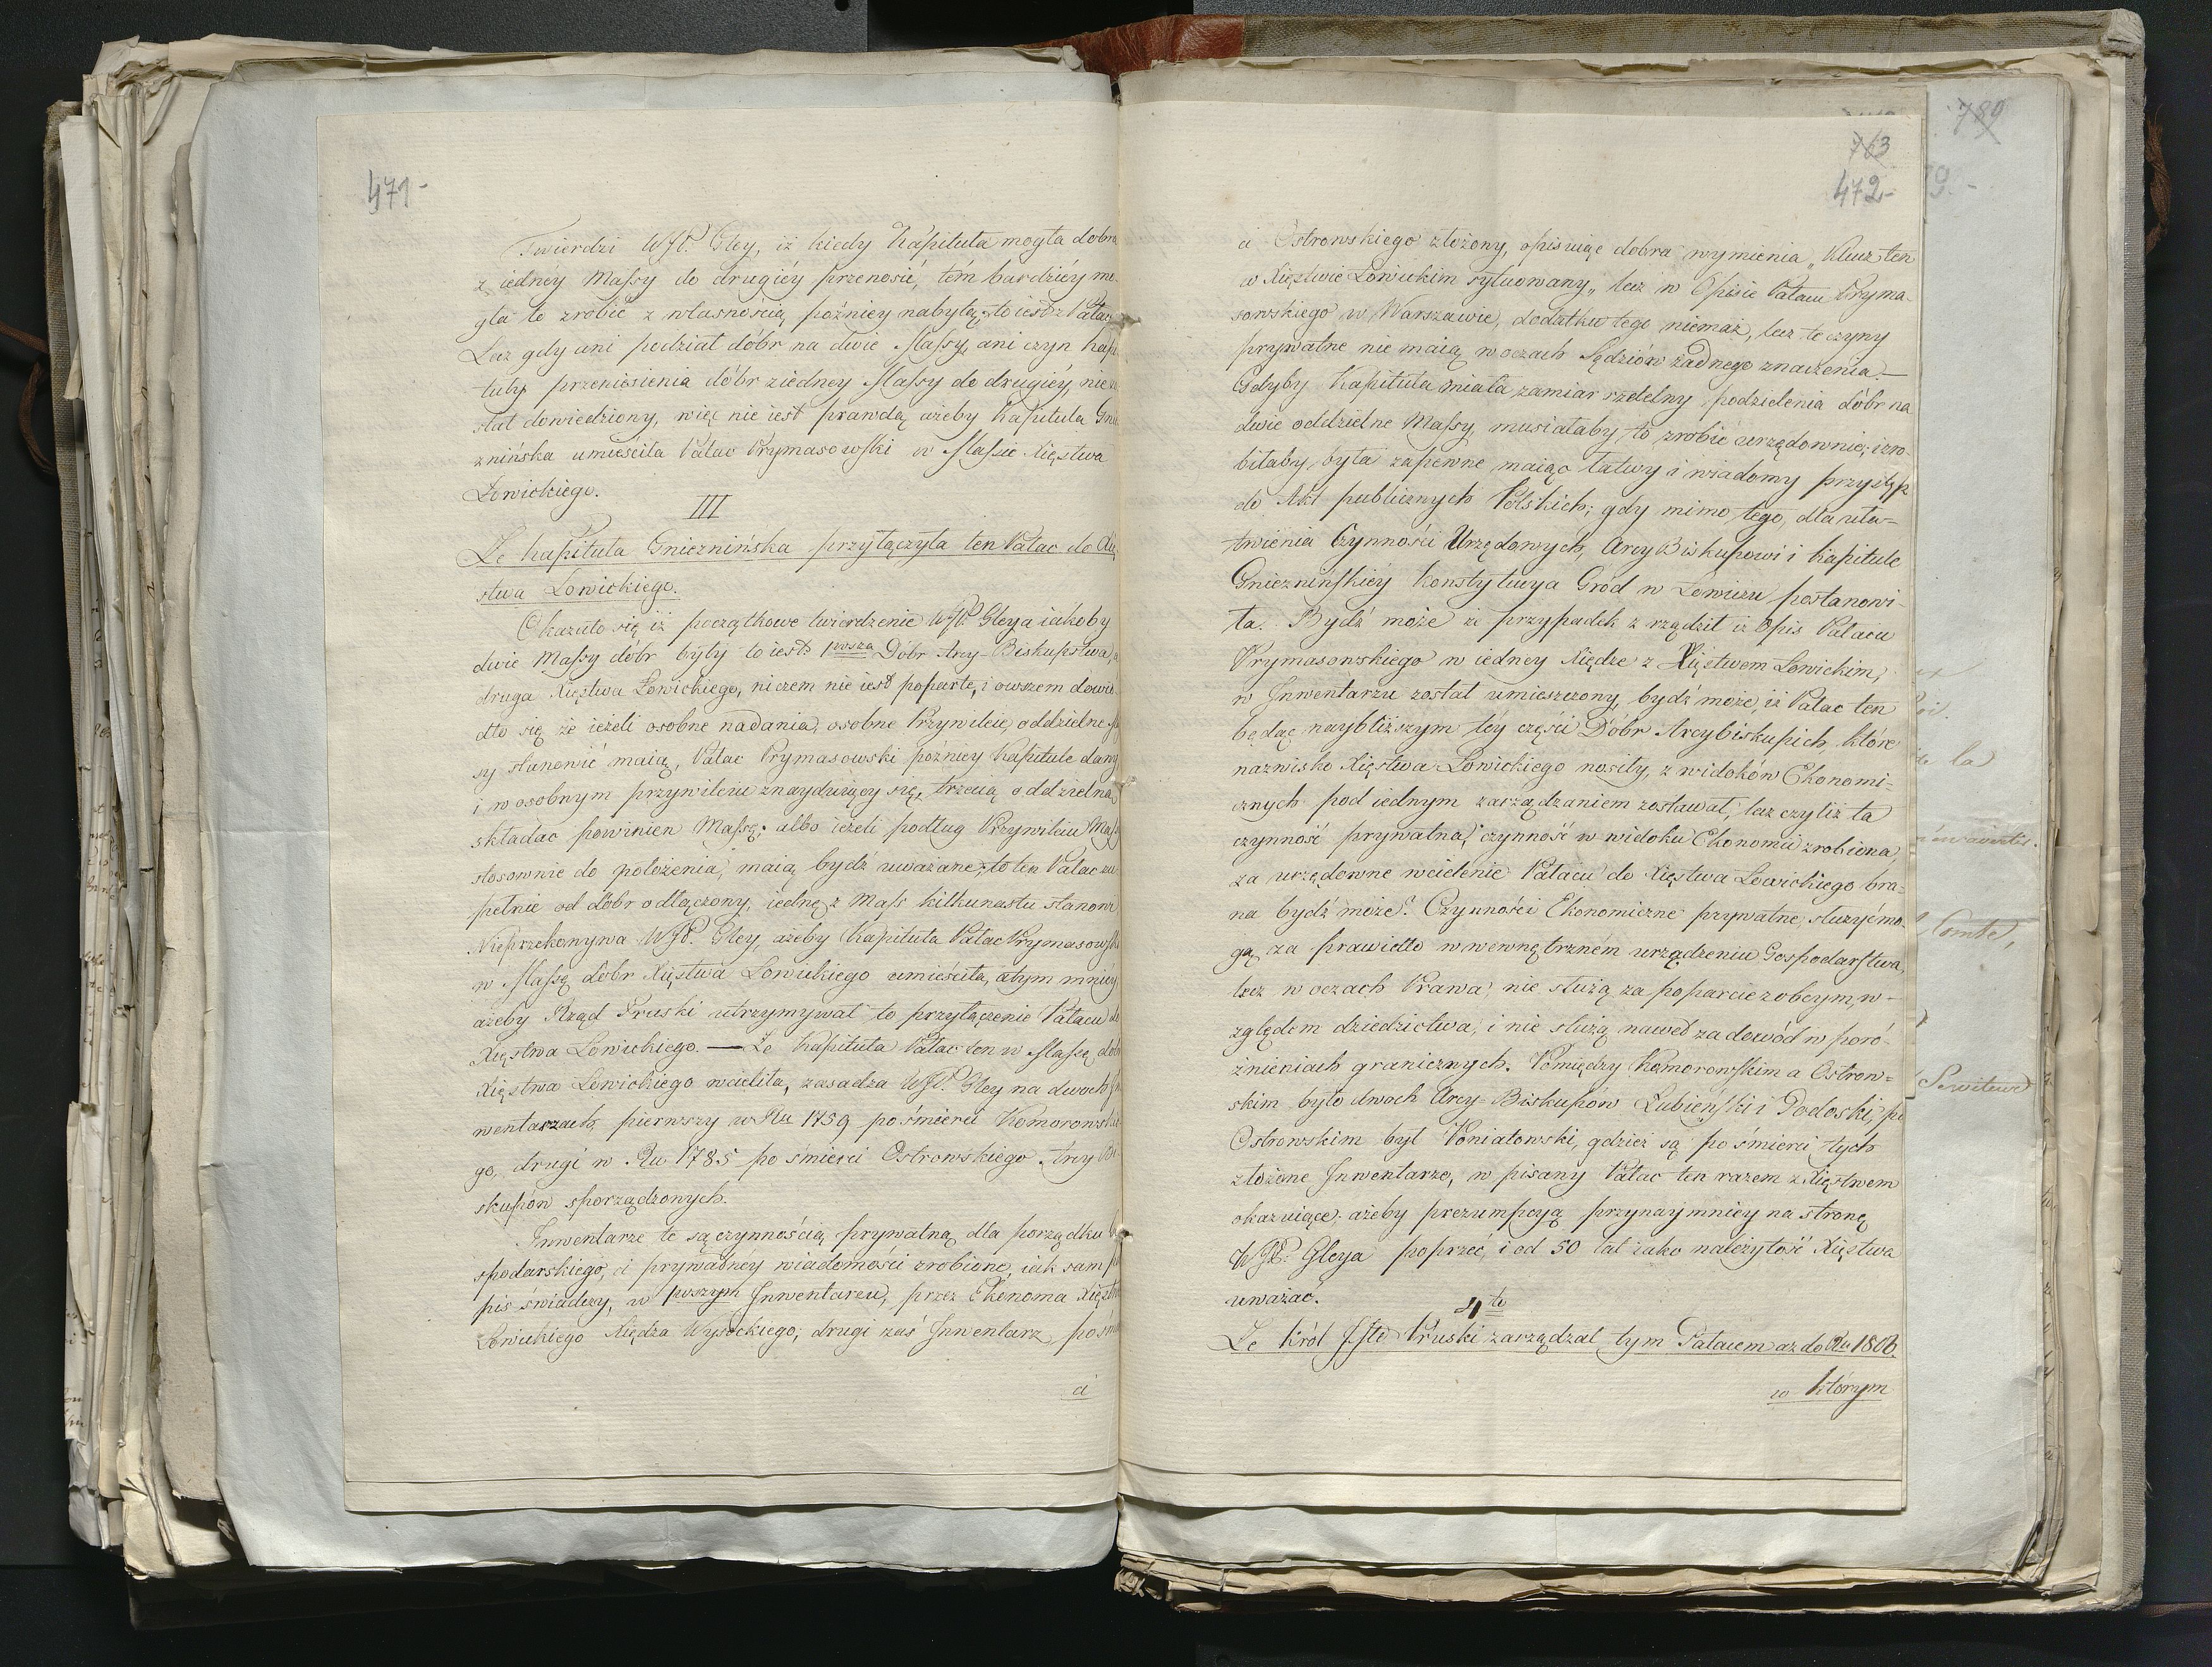 471-
Twierdzi WJP. Gley, iż kiedy Kapituła mogła dobra
z iedney Massy do drugiéy przenosić, tém bardziéy mo-
gła to zrobić z własnością późniey nabytą, to iest z Pałac
Lecz gdy ani podział dóbr na dwie Massy, ani czyn Kapi
tuły przeniesienia dóbr z iedney Massy do drugiéy, nie zo
stał dowiedziony, więc nie iest prawdą ażeby Kapituła Gnie
znińska umieściła Pałac Prymasowski w Massie Xięstwa
Łowickiego.
III
Że Kapituła Gnieznińska przyłączyła ten Pałac do Xię
stwa Łowickiego.
Okazało się iż początkowe twierdzenie WJP. Gleya iakoby
dwie Massy dóbr były to iest: 1wsza Dóbr Arcy-Biskupstwa, a
druga Xięstwa Łowickiego, niczem nie iest poparte, i owszem dowio
dło się że ieżeli osobne nadania, osobne Przywileie, oddzielne Mas
sy stanowić maią, Pałac Prymasowski późniey Kapitule dany
i w osobnym przywileiu znayduiący się, trzecią oddzielną
składać powinien Massę; albo ieżeli podług Przywileiu Massy
stosownie do położenia, maią bydź uważane, to ten Pałac zu
pełnie od dóbr odłączony, iednę z Mass kilkunastu stanowi
Nieprzekonywa WJP. Gley, ażeby Kapituła Pałac Prymasowski
w Massę dóbr Xięstwa Łowickiego umieściła, a tym mniey
ażeby Rząd Pruski utrzymywał to przyłączenie Pałacu do
Xięstwa Łowickiego. — Że Kapituła Pałac ten w Massę dóbr
Xięstwa Łowickiego wcieliła, zasadza WJP. Gley na dwoch In
wentarzach, pierwszy w Ru 1759 po śmierci Komorowskie
go, drugi w Ru 1785 po śmierci Ostrowskiego Arcy Bi
skupów sporządzonych.
Inwentarze te są czynnością prywatną dla porządku go
spodarskiego, i prywatnéy wiadomości zrobione, iak sam po
pis świadczy, w 1wszym Inwentarzu, przez Ekonoma Xięstwa
Łowickiego Xiędza Wysockiego; drugi zaś Inwentarz po śm
ci
763
472-
ci Ostrowskiego złożony, opisuiąc dobra wymienia „Klucz ten
w Xięstwie Łowickim sytuowany„ lecz w Opisie Pałacu Pryma-
sowskiego w Warszawie, dodatku tego niemasz, lecz te czyny
prywatne nie maią w oczach Sędziów żadnego znaczenia. —
Gdyby Kapituła miała zamiar rzetelny podzielenia dóbr na
dwie oddzielne Massy, musiałaby to zrobić urzędownie; i zro-
biłaby była zapewne, maiąc łatwy i wiadomy przystęp
do Akt publicznych Polskich; gdy mimo tego, dla uła=
twienia Czynności Urzędowych, Arcy Biskupowi i Kapitule
Gnieznińskiéy Konstytucya Gród w Łowiczu postanowi-
ła. Bydź może że przypadek zrządził iż Opis Pałacu
Prymasowskiego w iedney Xiędze z Xięstwem Łowickim,
w Inwentarzu został umieszczony, bydź może, iż Pałac ten
będąc naybliższym téy części Dóbr Arcybiskupich, które
nazwisko Xięstwa Łowickiego nosiły, z widoków Ekonomi=
cznych pod iednym zarządzaniem zostawał, lecz czyliż ta
czynność prywatna, czynność w widoku Ekonomii zrobiona,
za urzędowne wcielenie Pałacu do Xięstwa Łowickiego bra=
na bydź może? Czynności Ekonomiczne prywatne, służyć mo-
gą za prawidło w wewnętrzném urządzeniu Gospodarstwa,
lecz w oczach Prawa, nie służą za poparcie z obcym, w-
zględem dziedzictwa, i nie służą nawet za dowód w poró-
żnieniach granicznych. Pomiędzy Komorowskim a Ostrow=
skim było dwoch Arcy-Biskupow Łubieński i Podoski, po
Ostrowskim był Poniatowski, gdzież są po śmierci tych
złożone Inwentarze, wpisany Pałac ten razem z Xięstwem
okazuiące, ażeby prezumpcyą przynaymniey na stronę
WJP. Gleya poprzeć, i od 50 lat iako należytość Xięstwa
uważać.
4te
Że Król Jmć Pruski zarządzał tym Pałacem aż do Ru 1806.
w którym
789
9. -
la
Comte,